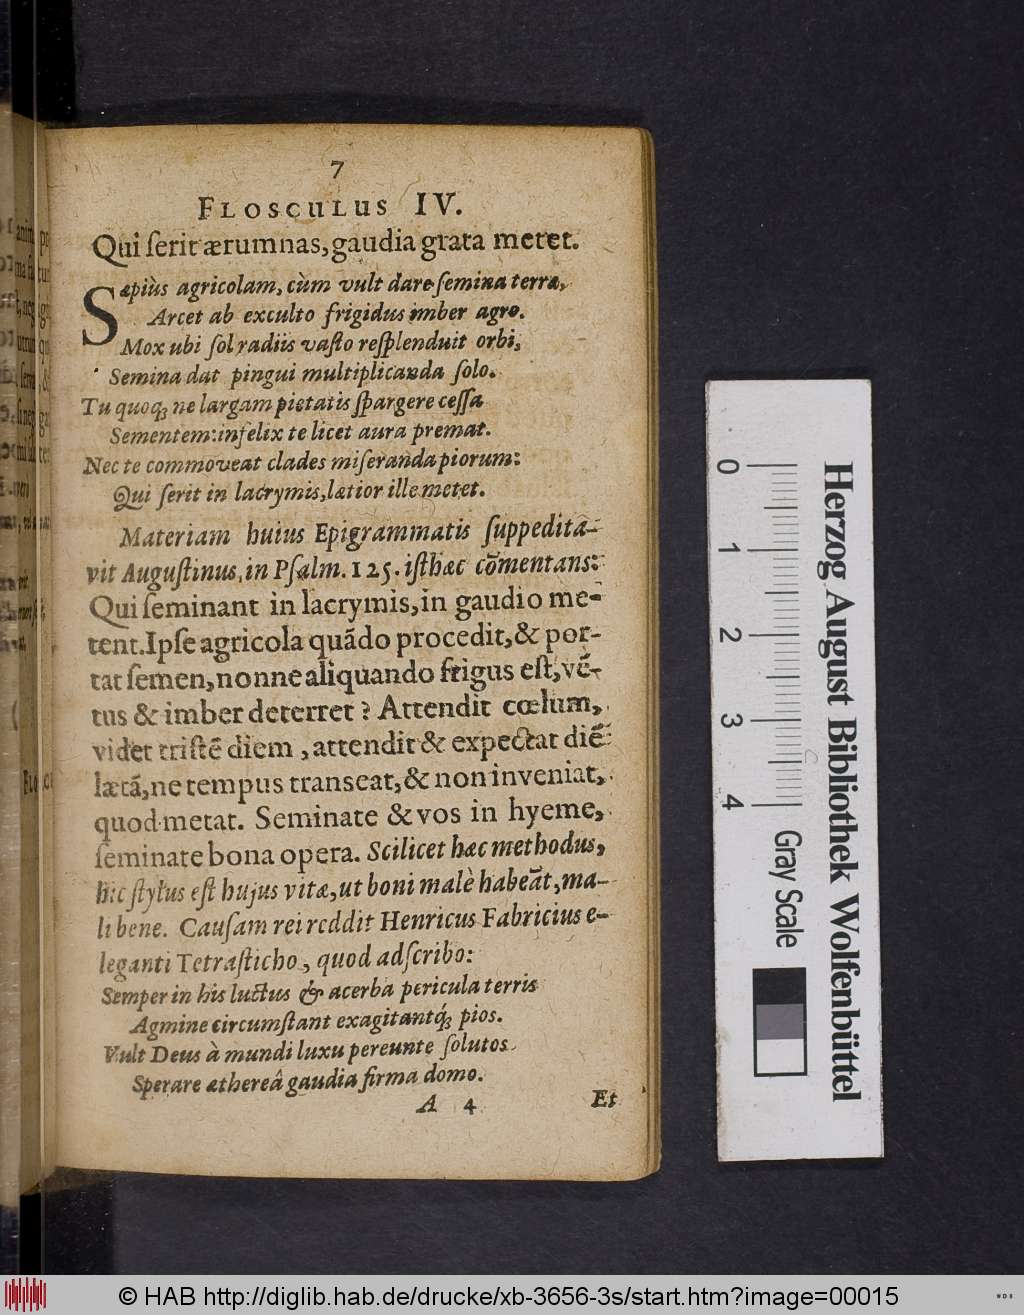 7
FLOSCULUS IV.
Qui ſerit ærumnas, gaudia grata metet.
Sæpiùs agricolam, cùm vult dare ſemina terræ,
Arcet ab exculto frigidus imber agro.
Mox ubi ſol radiis vaſto reſplenduit orbi,
Semina dat pingui multiplicanda ſolo.
Tu quoq; ne largam pietatis ſpargere ceſſa
Sementem: infelix te licet aura premat.
Nec te commoveat clades miſeranda piorum:
Qui ſerit in lacrymis, lætior ille metet.
Materiam huius Epigrammatis ſuppedita-
vit Auguſtinus, in Pſalm. 125. iſthæc cōmentans:
Qui ſeminant in lacrymis, in gaudio me-
tent. Ipſe agricola quãdo procedit, & por-
tat ſemen, nonne aliquando frigus eſt, vẽ-
tus & imber deterret? Attendit cœlum,
videt triſtẽ diem, attendit & expectat diẽ
lætã, ne tempus tranſeat, & non inveniat,
quod metat. Seminate & vos in hyeme,
ſeminate bona opera. Scilicet hæc methodus,
hic ſtylus eſt hujus vitæ, ut boni malè habeãt, ma-
li bene. Cauſam rei reddit Henricus Fabricius e-
leganti Tetraſticho, quod adſcribo:
Semper in his luctus & acerba pericula terris
Agmine circumſtant exagitantq́; pios.
Vult Deus à mundi luxu pereunte ſolutos
Sperare æthereâ gaudia firma domo.
A 4 Et
0 1 2 3 4
Gray Scale
Herzog August Bibliothek Wolfenbüttel
© HAB http://diglib.hab.de/drucke/xb-3656-3s/start.htm?image=00015